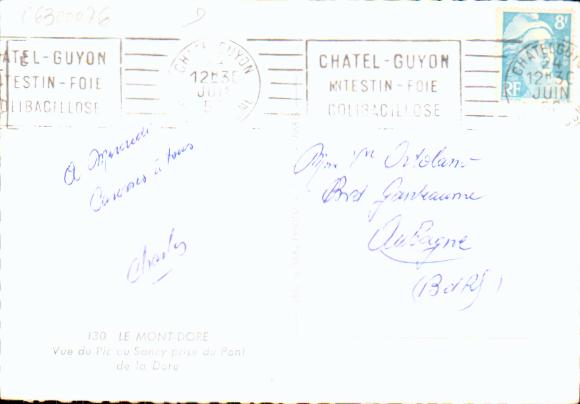 C6300076
CHATEL-GUYON
8F
ATEL-GUYON
TESTIN-FOIE
OLIBACILLOSE
CHATEL-GUYON
12H30
JUIN
CHATEL-GUYON
INTESTIN-FOIE
COLIBACILLOSE
CHATEL-GUYON
24
12H30
JUIN
RF
A Mercredi
Caresses à tous
Charles
Mme Vve Ortolan
Bvd Ganteaume
Aubagne
(BdR)
130 LE MONT-DORE
Vue du Pic du Sancy prise du Pont
de la Dore